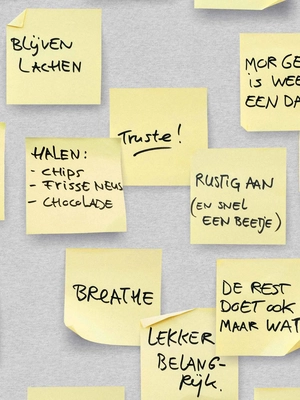 BLijVEN
LACHEN
MORGE
is WEE
EEN DA
Truste!
HALEN:
- CHIPS
- FRISSE NEUS
- CHOCOLADE
RUSTIG AAN
(EN SNEL
EEN BEETJE)
BREATHE
DE REST
DOET OOK
MAAR WAT
LEKKER
BELANG-
Rijk.